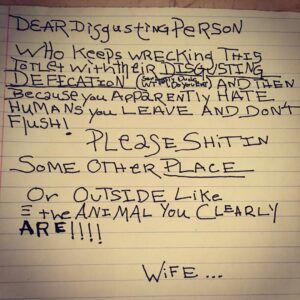 DEAR DISgUSTING PERSON
WHO KEEPS WRECKING THIS
TOILET WITH THEIR DISGUSTING
DEFICATION AND THEN
Because you APPARENTLY HATE
HUMANS you LEAVE AND DON'T
FLUSH!
PLEASE SHIT IN
SOME OTHER PLACE
Or OUTSIDE LIKE
the ANIMAL YOU CLEARLY
ARE!!!!
WIFE...